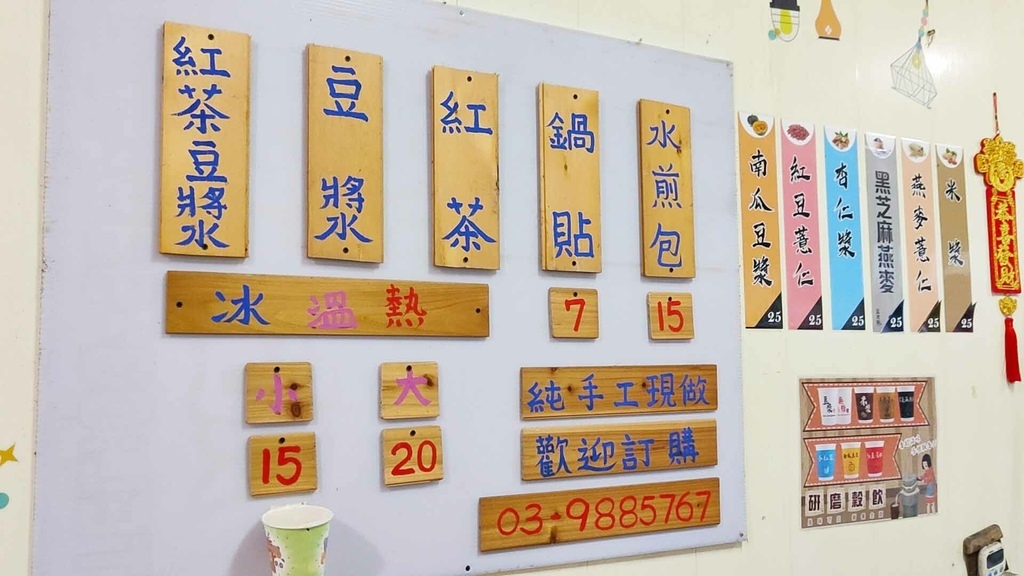 紅茶豆漿
豆漿
紅茶
鍋貼
水煎包
冰溫熱
7
15
小
大
15
20
純手工現做
歡迎訂購
03-9885767
南瓜豆漿
25
紅豆薏仁
25
杏仁漿
25
黑芝麻燕麥
25
燕麥薏仁
25
米漿
25
恭喜發財
研磨穀飲